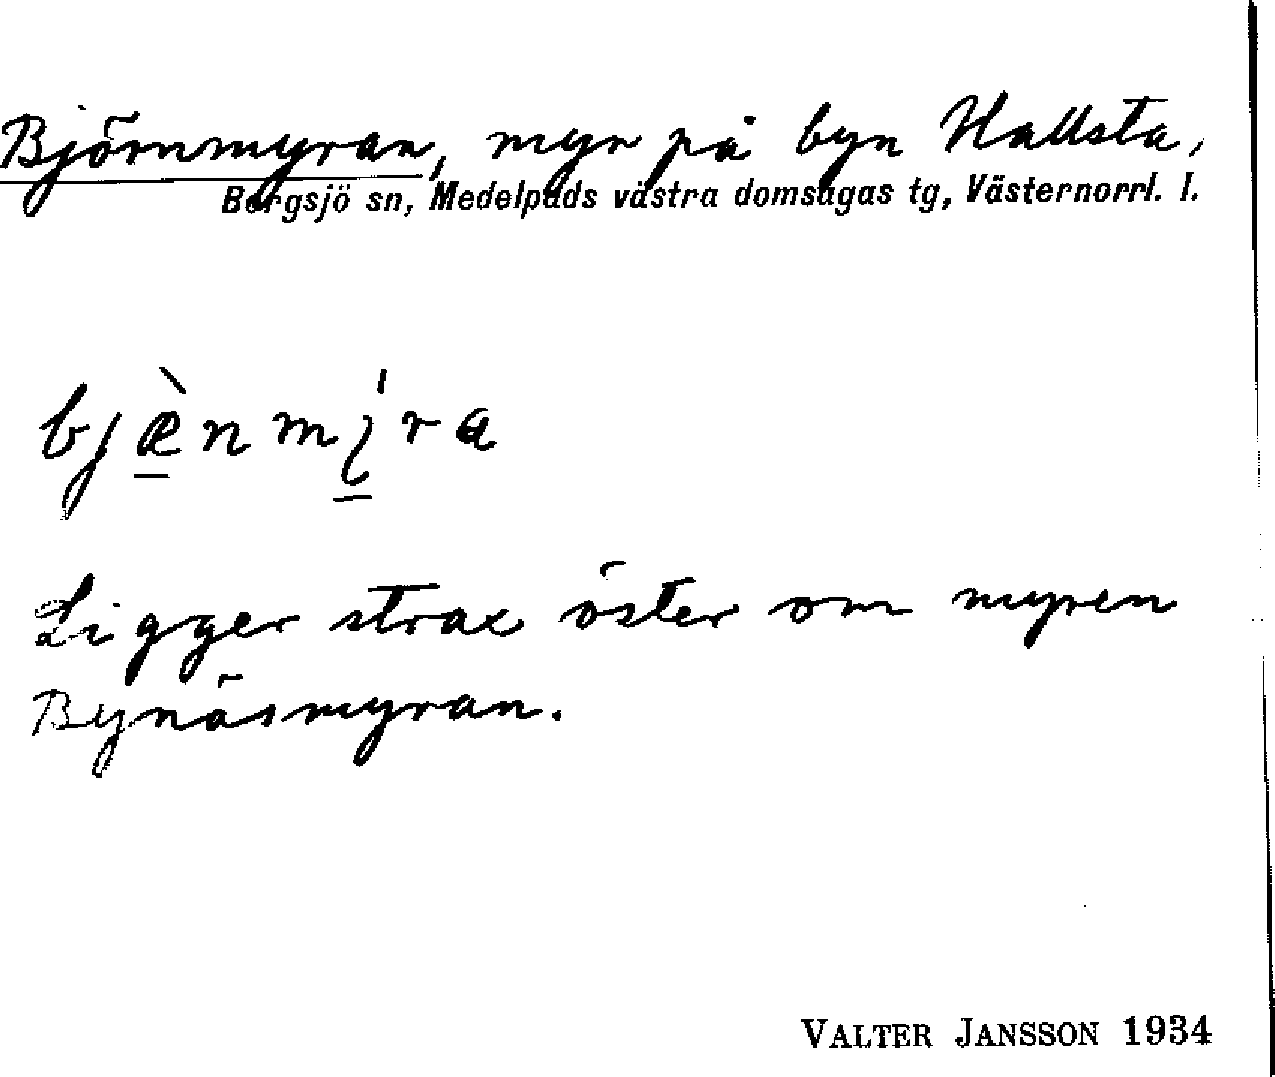 Björnmyran, myr på byn Hallsta,
Bergsjö sn, Medelpads västra domsagas tg, Västernorrl. l.
bjæ̀nmı̨̍ra
Ligger strax öster om myren
Bynäsmyran.
VALTER JANSSON 1934